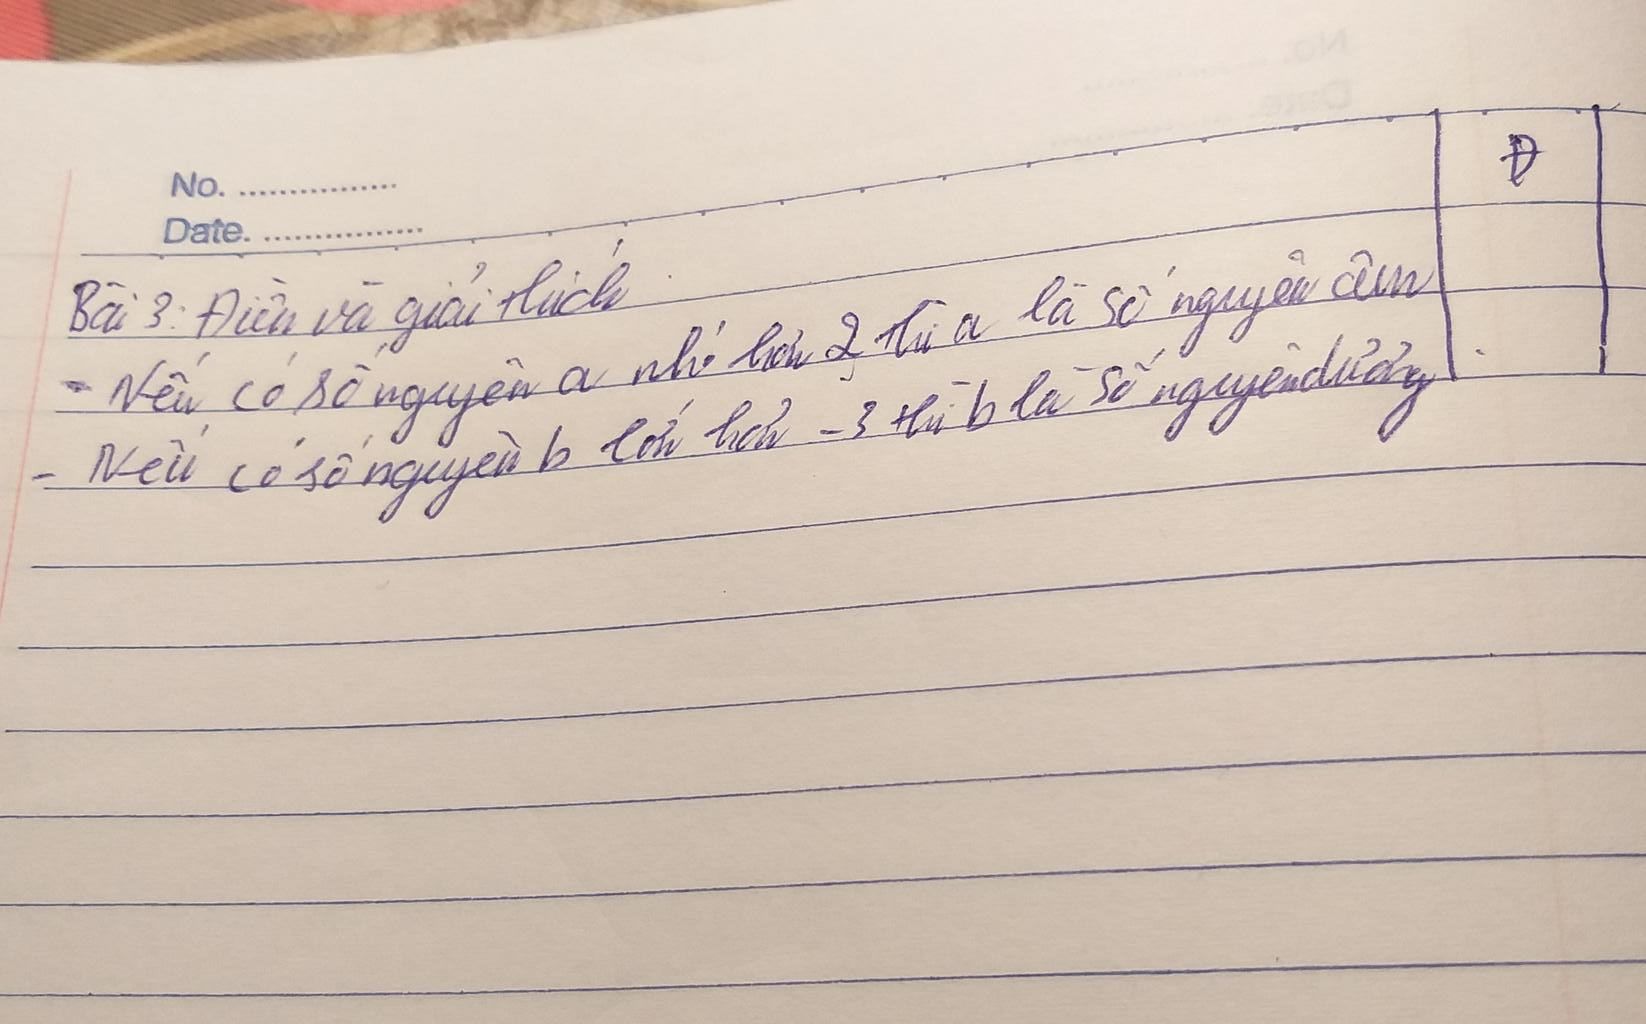 No. ................
Date. ................
Đ
Bài 3: Điền và giải thích
- Nếu có số nguyên a nhỏ hơn 2 thì a là số nguyên âm
- Nếu có số nguyên b lớn hơn -3 thì b là số nguyên dương